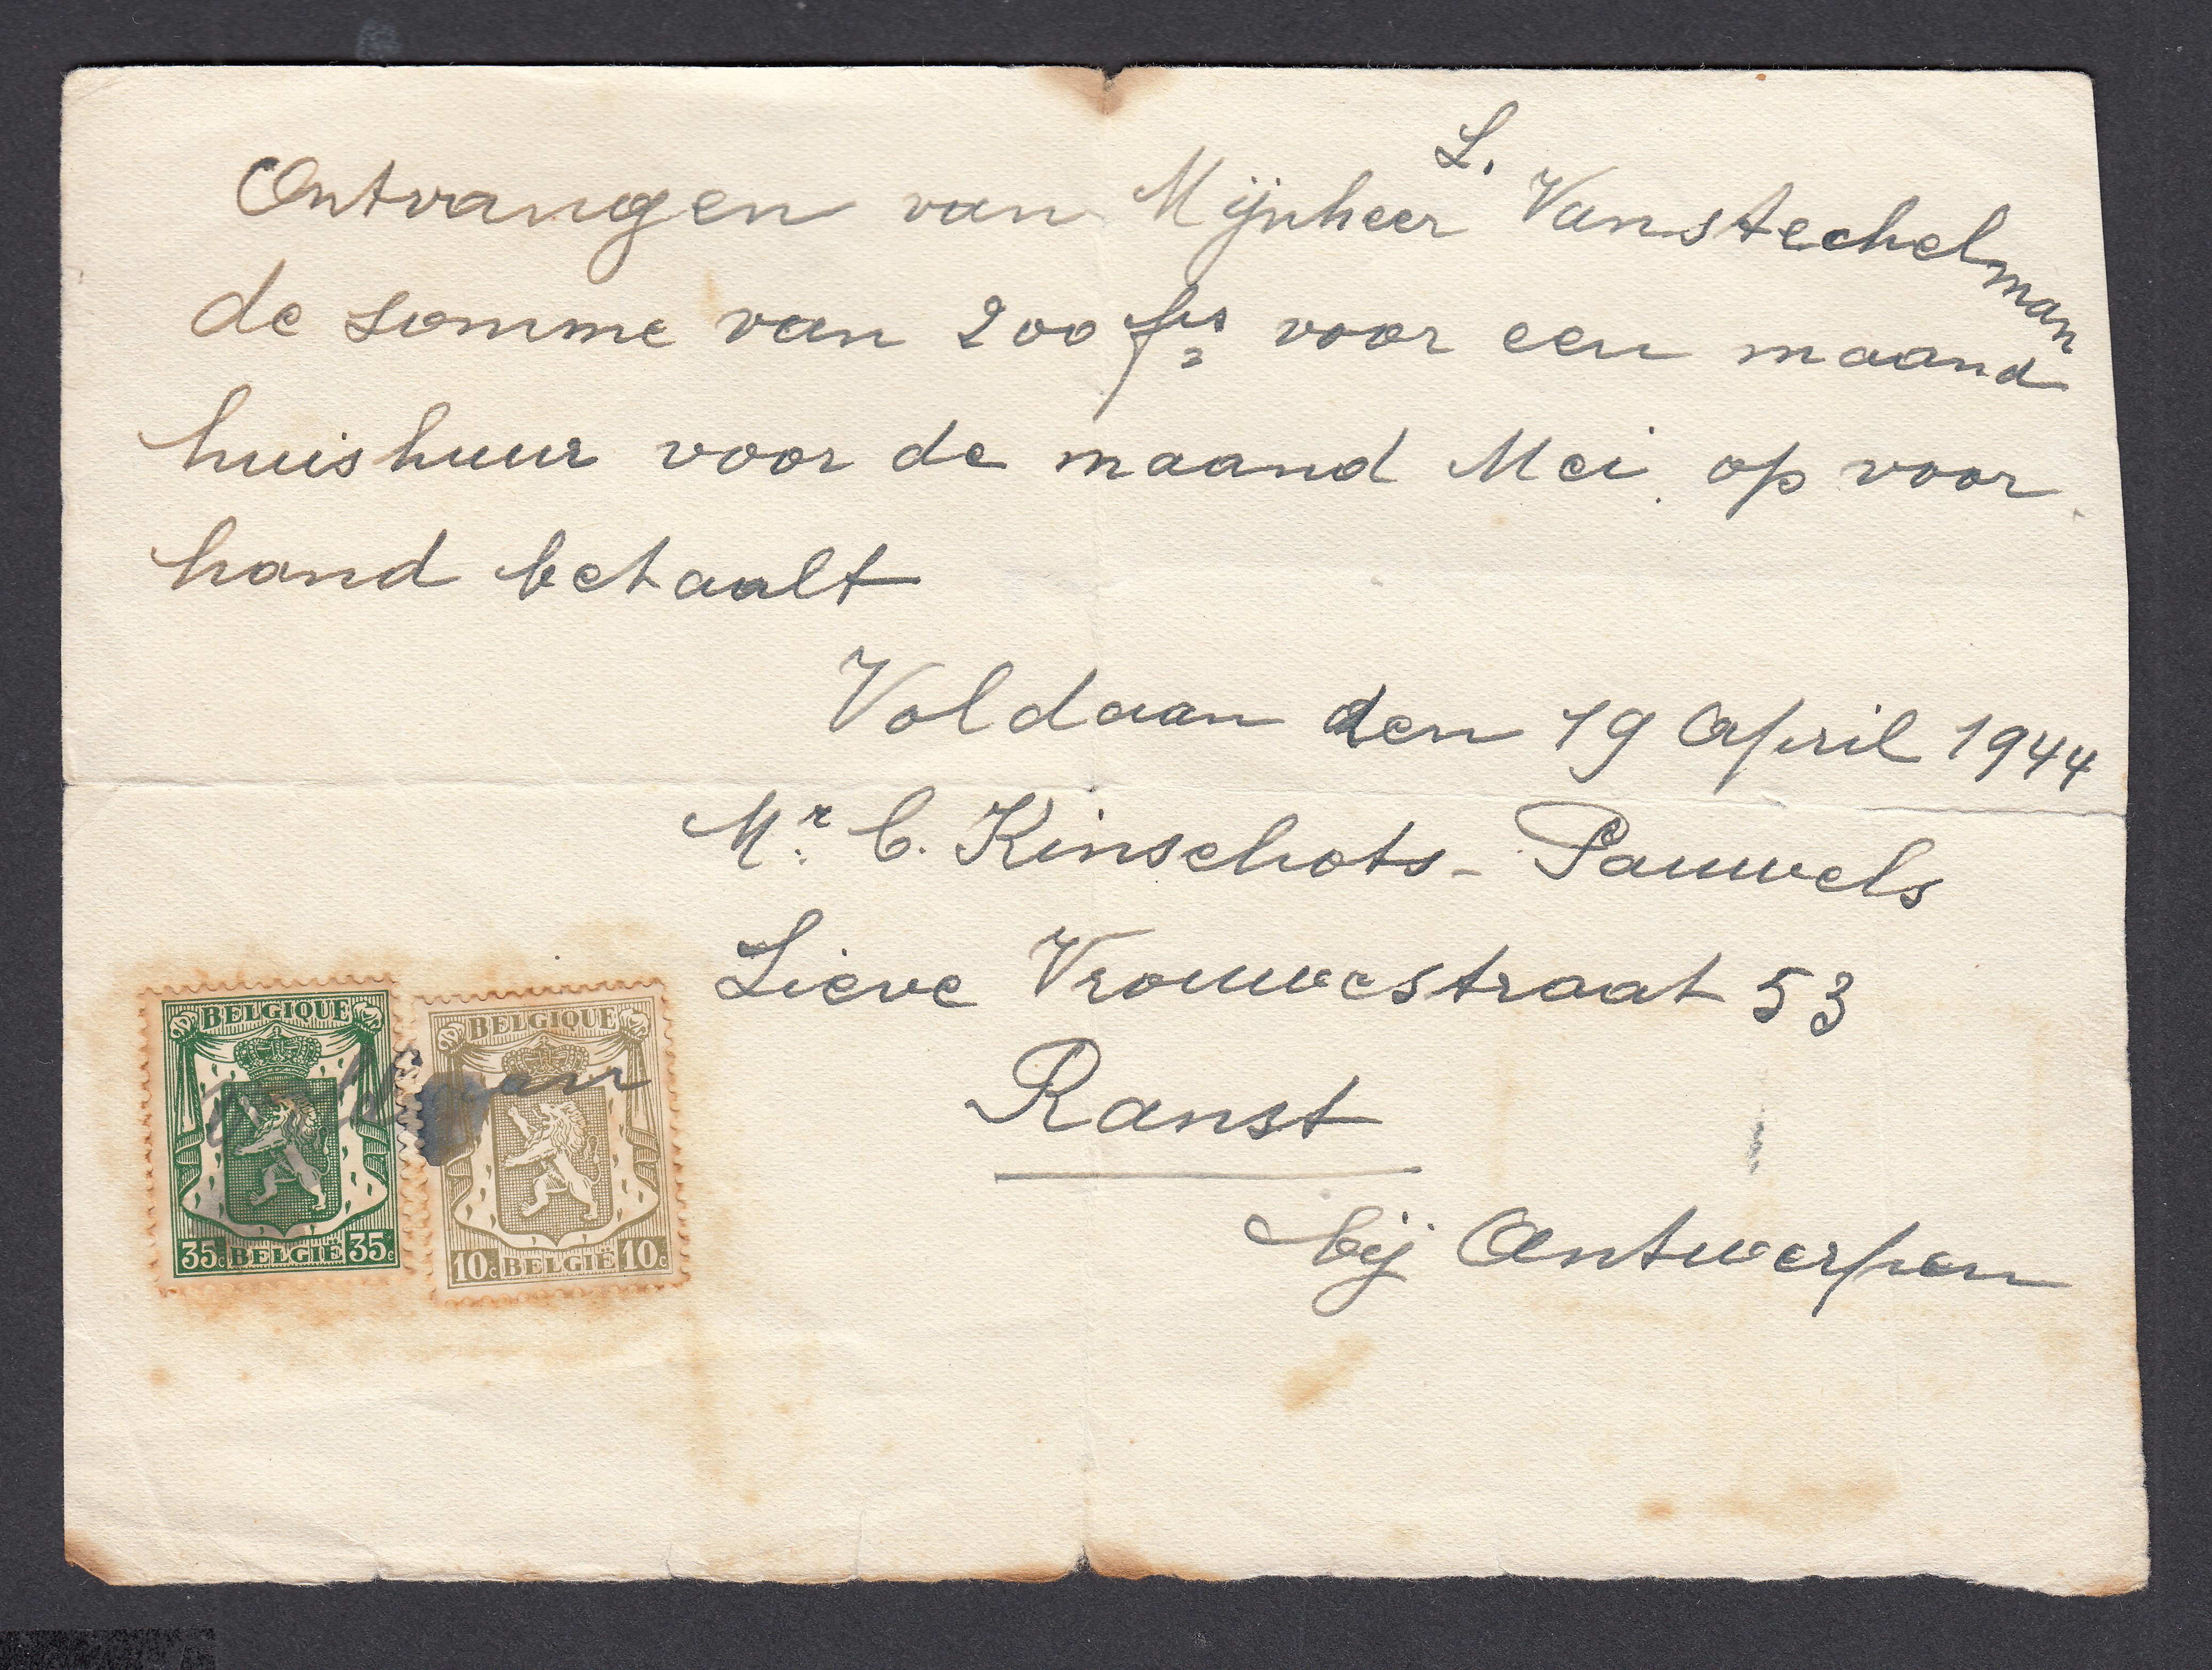 Ontvangen van Mijnheer L. Vanstechelman
de somme van 200 frs voor een maand
huishuur voor de maand Mei op voor
hand betaalt
Voldaan den 19 April 1944
Mr. C. Kinschots - Pauwels
Lieve Vrouwestraat 53
Ranst
bij Antwerpen
BELGIQUE BELGIQUE
voldaan
35c BELGIË 35c 10c BELGIË 10c